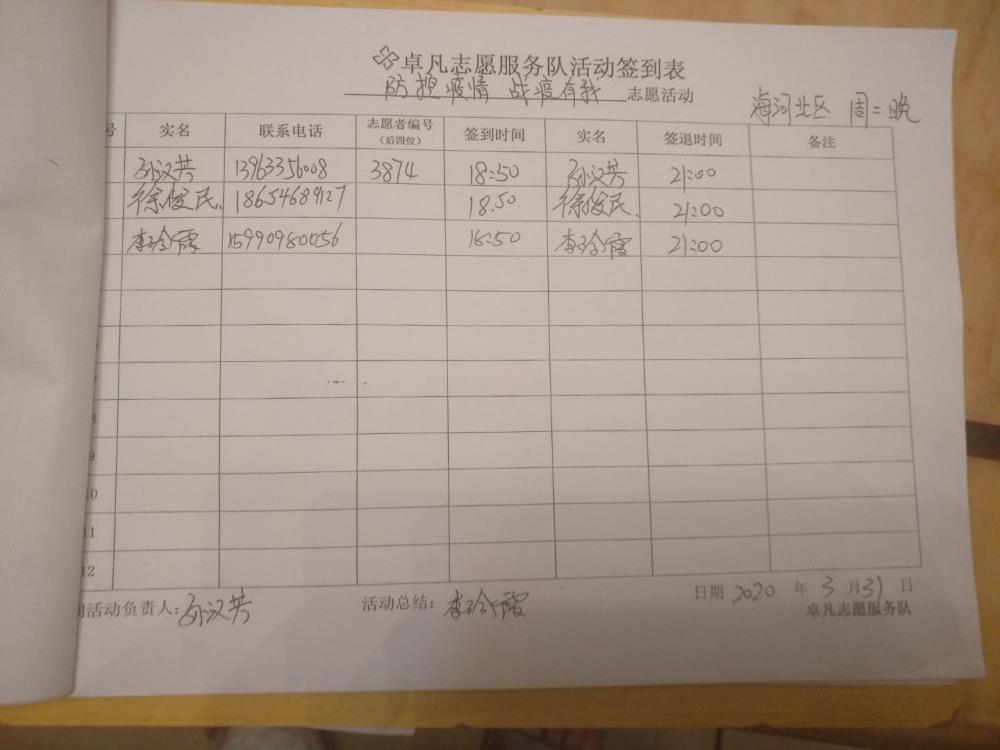 卓凡志愿服务队活动签到表
防控疫情 战疫有我 志愿活动
海河北区 周二晚
号 实名 联系电话 志愿者编号 签到时间 实名 签退时间 备注
(后四位)
孙汉芳 13963356008 3874 18:50 孙汉芳 21:00
徐俊民 18654689127 18.50. 徐俊民 21:00
李玲霞 15990980056 18:50 李玲霞 21:00
8
9
10
11
12
期活动负责人:孙汉芳 活动总结:李玲霞 日期 2020 年 3 月 31 日
卓凡志愿服务队